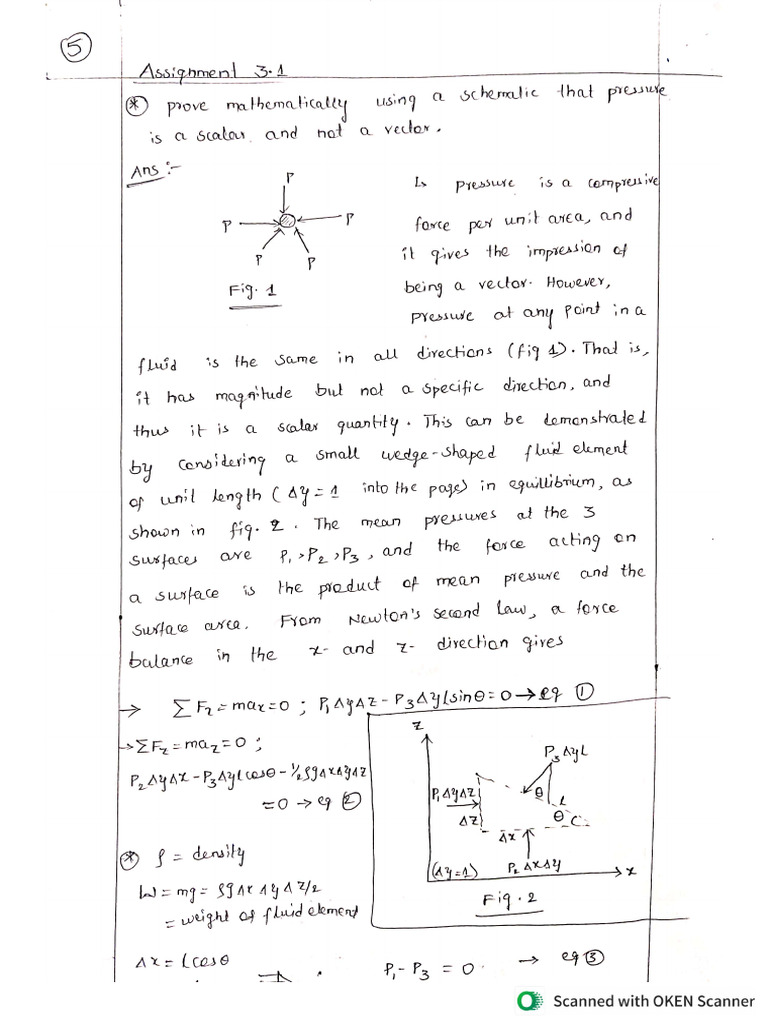 5
Assignment 3.1
* prove mathematically using a schematic that pressure
is a scalar and not a vector.
Ans :-
P
P
P
P
P
Fig. 1
↳ pressure is a compressive
force per unit area, and
it gives the impression of
being a vector. However,
pressure at any point in a
fluid is the same in all directions (fig 1). That is,
it has magnitude but not a specific direction, and
thus it is a scalar quantity. This can be demonstrated
by considering a small wedge-shaped fluid element
of unit length (Δy = 1 into the page) in equillibrium, as
shown in fig. 2. The mean pressures at the 3
surfaces are P₁, P₂, P₃, and the force acting on
a surface is the product of mean pressure and the
surface area. From Newton's second law, a force
balance in the x- and z- direction gives
→ ΣFz = max = 0 ; P₁ΔyΔz - P₃ΔyLsinθ = 0 → eq ①
→ ΣFz = maz = 0 ;
P₂ΔyΔx - P₃ΔyLcosθ - 1/2 ρgΔxΔyΔz
= 0 → eq ②
* ρ = density
W = mg = ρgΔxΔyΔz/2
= weight of fluid element
Δx = Lcosθ
z
P₃ΔyL
P₁ΔyΔz
θ
L
Δz
θ
Δx
(Δy=1)
P₂ΔxΔy
x
Fig. 2
P₁ - P₃ = 0 → eq ③
Scanned with OKEN Scanner